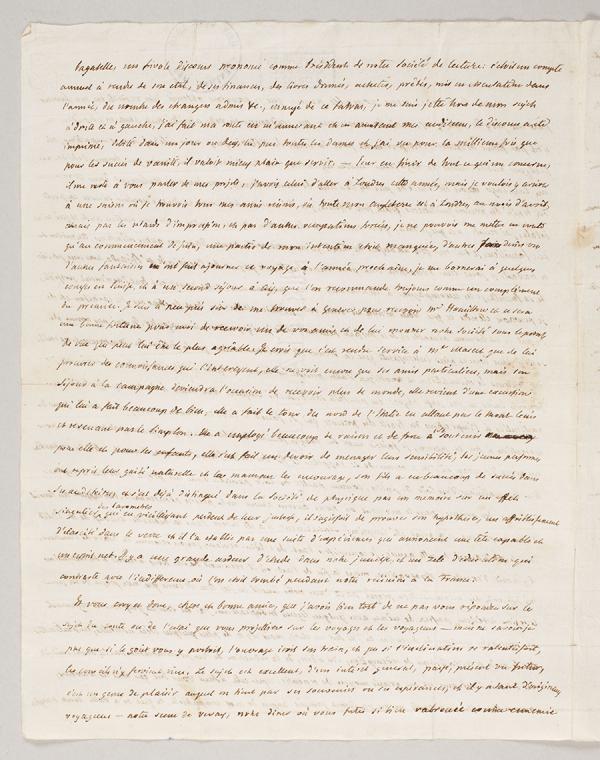 Bagatelle, un frivole discours prononcé comme Président de notre société de lecture: c'étoit un compte
annuel à rendre de son état, de ses finances, des livres donnés, achetés, prêtés, mis en circulation dans
l'année, du nombre des étrangers admis &c., ennuyé de ce fatras, je me suis jetté hors de mon sujet
à droite et à gauche, j'ai fait ma route en m'amusant et en amusant mes auditeurs, le discours a été
imprimé, débité dans un jour ou deux, lu par toutes les dames et j'ai vu pour la millième fois que
pour les succès de vanité, il valoit mieux plaire que servir. — pour en finir de tout ce qui me concerne,
il me reste à vous parler de mes projets, j'avois celui d'aller à Londres cette année, mais je voulois y arriver
à une saison où je trouvois tous mes amis réunis, soit en et à Londres, au mois d'avril,
mais par les retards d'impression, et par d'autres occupations forcées, je ne pouvois me mettre en route
qu'au commencement de Juin, une partie de mon intention étoit manquée, d'autres
d'autres fantaisies m'ont fait ajourner ce voyage à l'année prochaine, je me bornerai à quelques
courses en Suisse, et à un second séjour à Aix, que l'on recommande toujours comme un complément
du premier. Je suis à peu près sûr de me trouver à Genève pour recevoir Mr Hamilton et ce sera
une bonne fortune pour moi de recevoir un de vos amis et de lui montrer notre société sous le point
de vue qui peut lui être le plus agréable. Je crois que c'est rendre service à Me Marcet que de lui
procurer des connoissances qui l'intéressent, elle ne voit encore que ses amis particuliers, mais son
séjour à la campagne deviendra l'occasion de recevoir plus de monde, elle revient d'une excursion
qui lui a fait beaucoup de bien, elle a fait le tour du nord de l'Italie en allant par le mont Cenis
et revenant par le Simplon. Elle a employé beaucoup de raison et de force à se soutenir
pour elle et pour ses enfants, elle s'est fait un devoir de ménager leur sensibilité, les jeunes personnes
ont repris leur gaité naturelle et leur maman les encourage, son fils a eu beaucoup de succès dans
et s'est déjà distingué dans la Société de physique par un mémoire sur un effet
singulier des baromètres qui en vieillissant perdent de leur justesse, il s'agissoit de prouver son hypothèse, un affoiblissement
d'élasticité dans le verre et il l'a établie par une suite d'expériences qui annoncent une tête capable et
un esprit net. Il y a une grande ardeur d'étude dans notre jeunesse et un zèle d'éducation qui
contraste avec l'indifférence où l'on étoit tombé pendant notre réunion à la France.
Et vous croyez donc, chère et bonne amie, que j'avois bien tort de ne pas vous répondre sur le
sujet du conte ou de l'essai que vous projettiez sur les voyages et les voyageurs — mais ne savois-je
pas que si le goût vous y portoit, l'ouvrage iroit son train, et que si l'inclination se ralentissoit,
les conseils n'y feroient rien. Le sujet est excellent, d'un intérêt général, passé, présent ou futur,
c'est un genre de plaisir auquel on tient par ses souvenirs ou ses espérances, et il y a tant d'
voyageurs — notre scène de Vevay, notre diner où vous fûtes si bien rabrouée comme ennemie